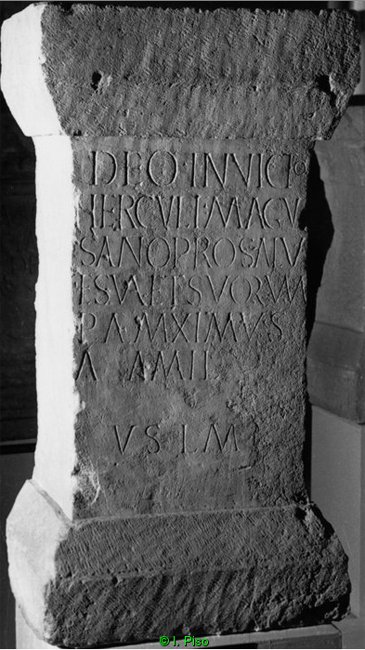 DEO·INVICTO
HERCVLI·MAGV
SANOPROSALV
TESVAETSVORVM
P A MXIMVS
A AMII
VSLM
© I. Piso